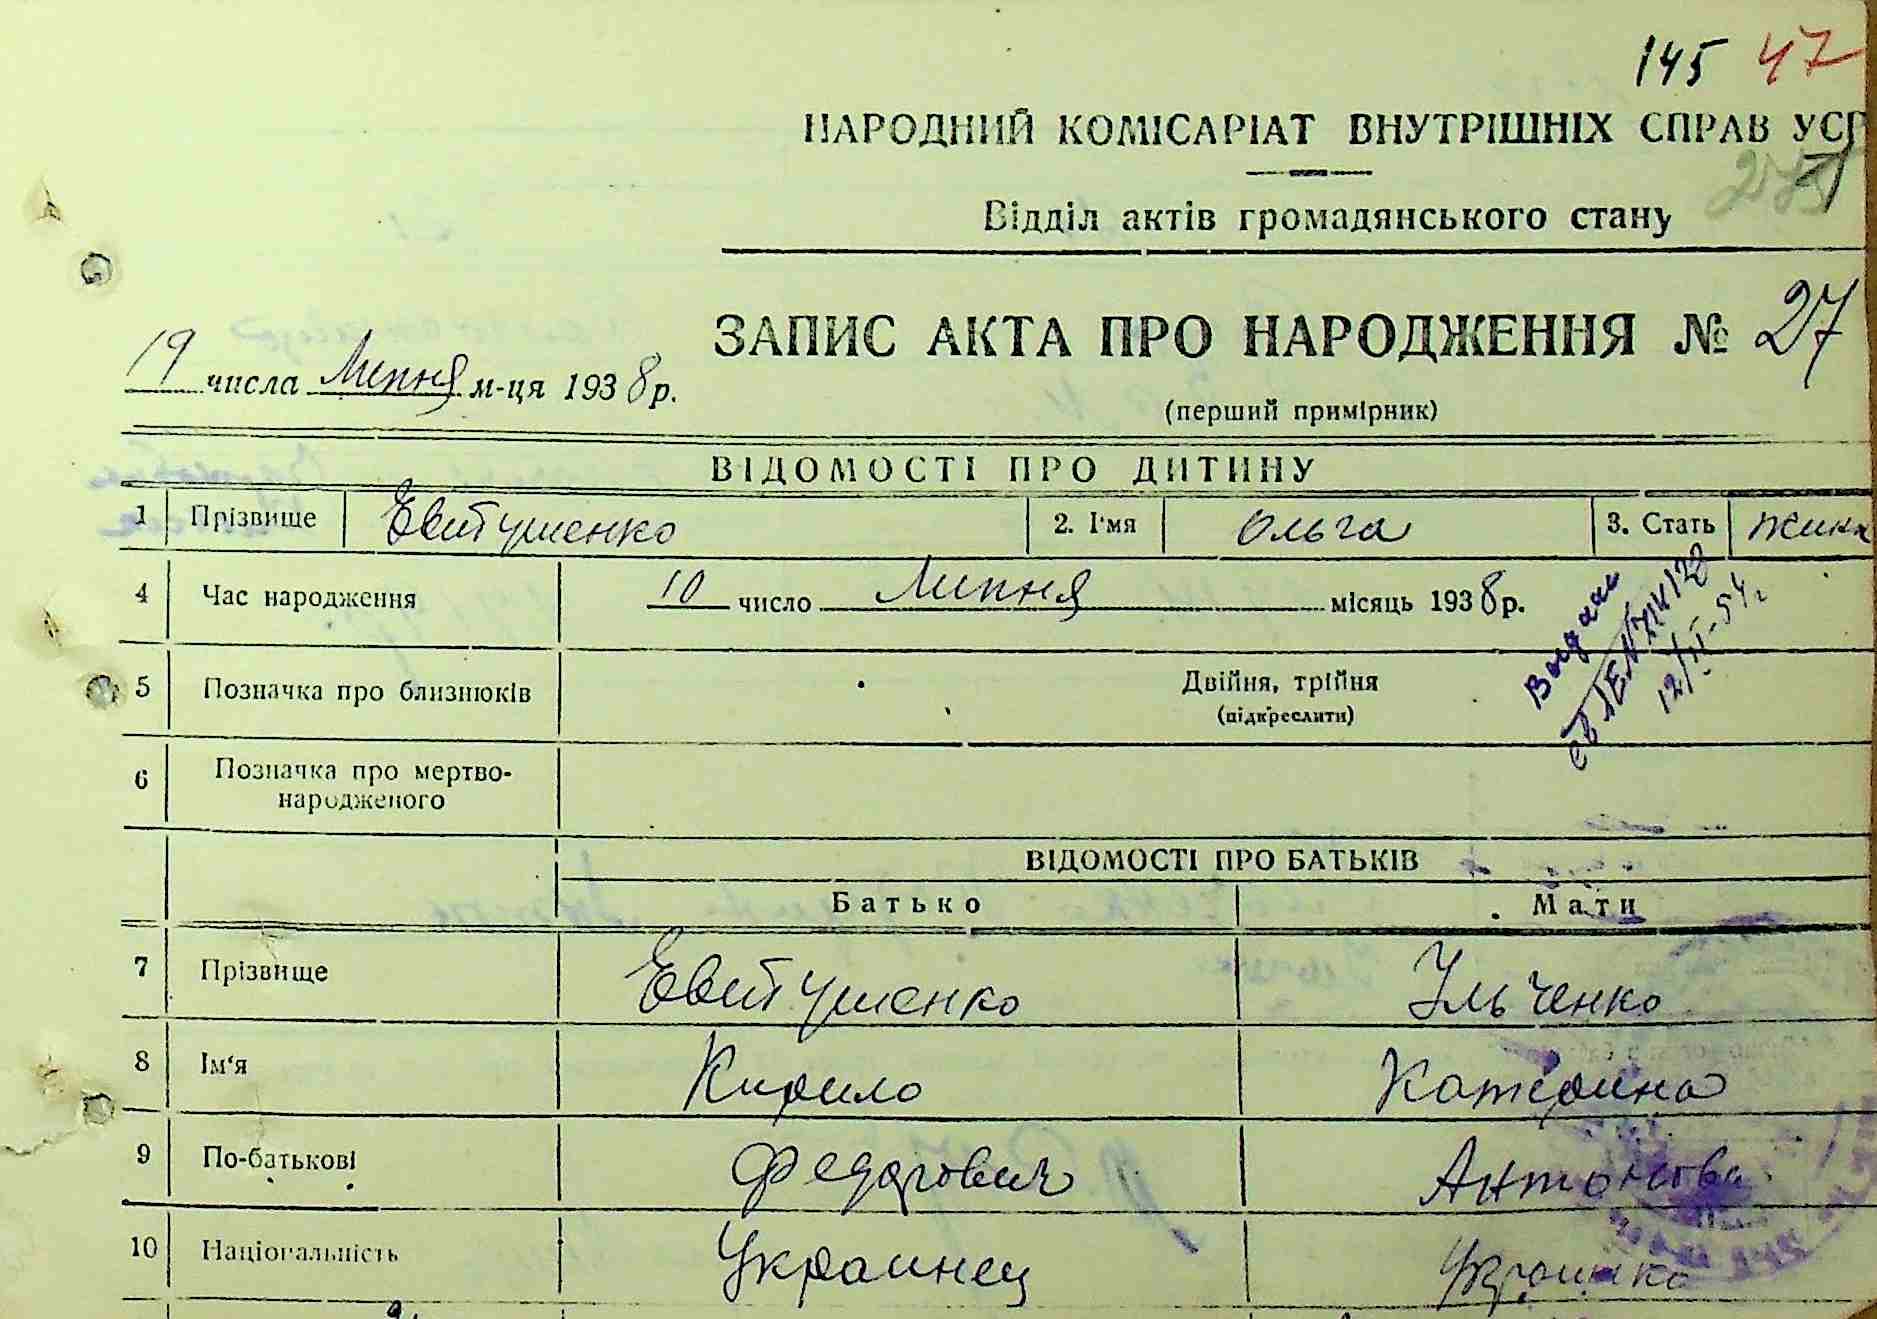 145 47
НАРОДНИЙ КОМІСАРІАТ ВНУТРІШНІХ СПРАВ УСР
275
Відділ актів громадянського стану
ЗАПИС АКТА ПРО НАРОДЖЕННЯ № 27
19 числа Липня м-ця 1938 р.
(перший примірник)
ВІДОМОСТІ ПРО ДИТИНУ
1 Прізвище Евтушенко 2. І'мя Ольга 3. Стать жинк
4 Час народження 10 число Липня місяць 1938 р.
Выдан
12/II-54г
5 Позначка про близнюків Двійня, трійня
(підкреслити)
6 Позначка про мертво-
народженого
ВІДОМОСТІ ПРО БАТЬКІВ
Батько Мати
7 Прізвище Евтушенко Ильченко
8 Ім'я Кирило Катерина
9 По-батькові Федорович Антоновна
10 Національність Украинец Украинка